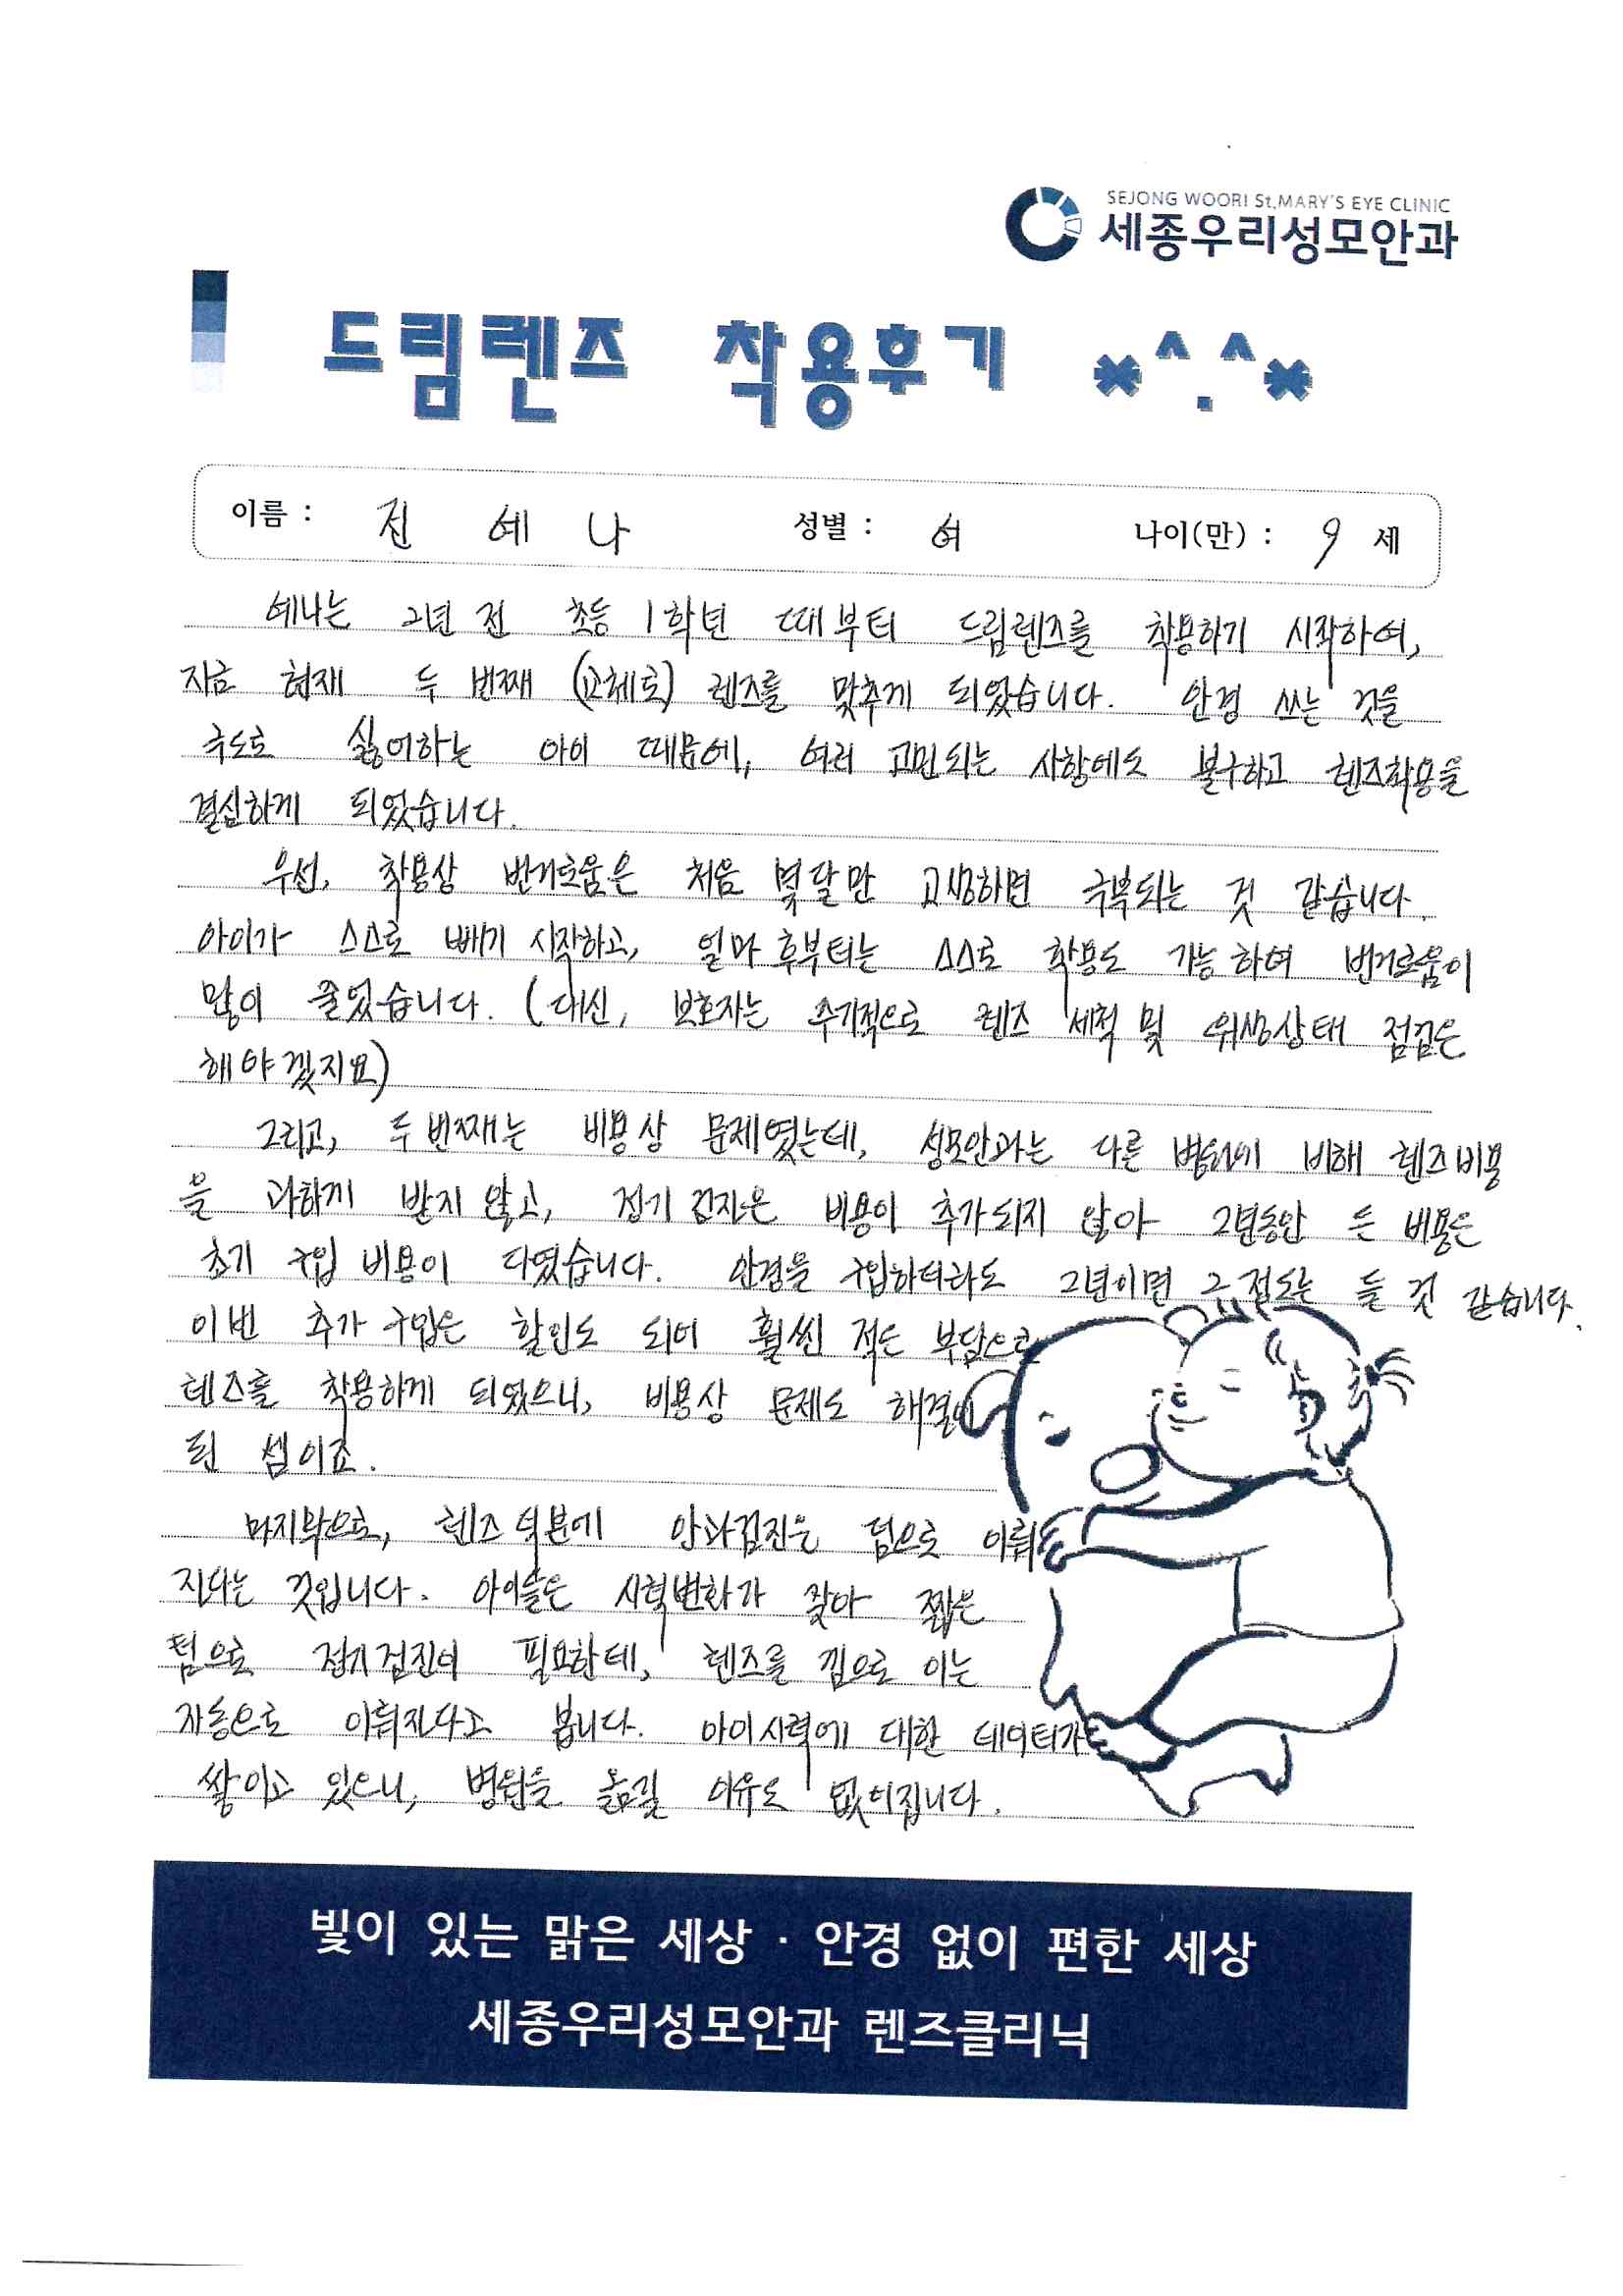 SEJONG WOORI St.MARY'S EYE CLINIC
세종우리성모안과
드림렌즈 착용후기 *^.^*
이름 : 진 예 나 성별 : 여 나이(만) : 9 세
예나는 2년 전 초등 1학년 때부터 드림렌즈를 착용하기 시작하여,
지금 현재 두 번째 (교체로) 렌즈를 맞추게 되었습니다. 안경 쓰는 것을
극도로 싫어하는 아이 때문에, 여러 고민되는 사항에도 불구하고 렌즈착용을
결심하게 되었습니다.
우선, 착용상 번거로움은 처음 몇달만 고생하면 극복되는 것 같습니다.
아이가 스스로 빼기 시작하고, 얼마 후부터는 스스로 착용도 가능하여 번거로움이
많이 줄었습니다. (대신, 보호자는 주기적으로 렌즈 세척 및 위생상태 점검은
해야겠지요)
그리고, 두번째는 비용상 문제였는데, 성모안과는 다른 병원에 비해 렌즈비용
을 과하게 받지 않고, 정기검진은 비용이 추가되지 않아 2년동안 든 비용은
초기 구입 비용이 다였습니다. 안경을 구입하더라도 2년이면 그 정도는 들 것 같습니다.
이번 추가 구입은 할인도 되어 훨씬 적은 부담으로
렌즈를 착용하게 되었으니, 비용상 문제도 해결이
된 셈이죠.
마지막으로, 렌즈 덕분에 안과검진은 덤으로 이뤄
진다는 것입니다. 아이들은 시력변화가 잦아 짧은
텀으로 정기검진이 필요한데, 렌즈를 낌으로 이는
자동으로 이뤄진다고 봅니다. 아이시력에 대한 데이터가
쌓이고 있으니, 병원을 옮길 이유도 없어집니다.
빛이 있는 맑은 세상 · 안경 없이 편한 세상
세종우리성모안과 렌즈클리닉